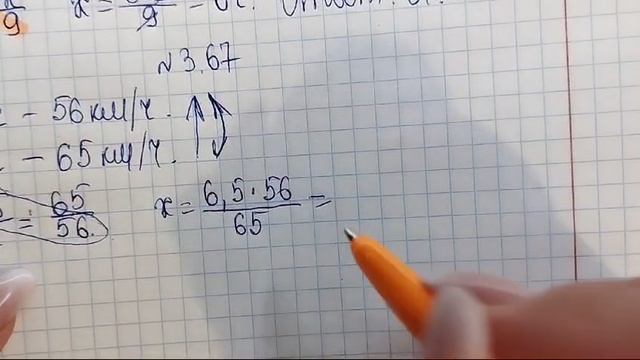 9 x = 9 =
№ 3.67
– 56 км/ч.
– 65 км/ч.
= 65/56 x = 6,5·56/65 =